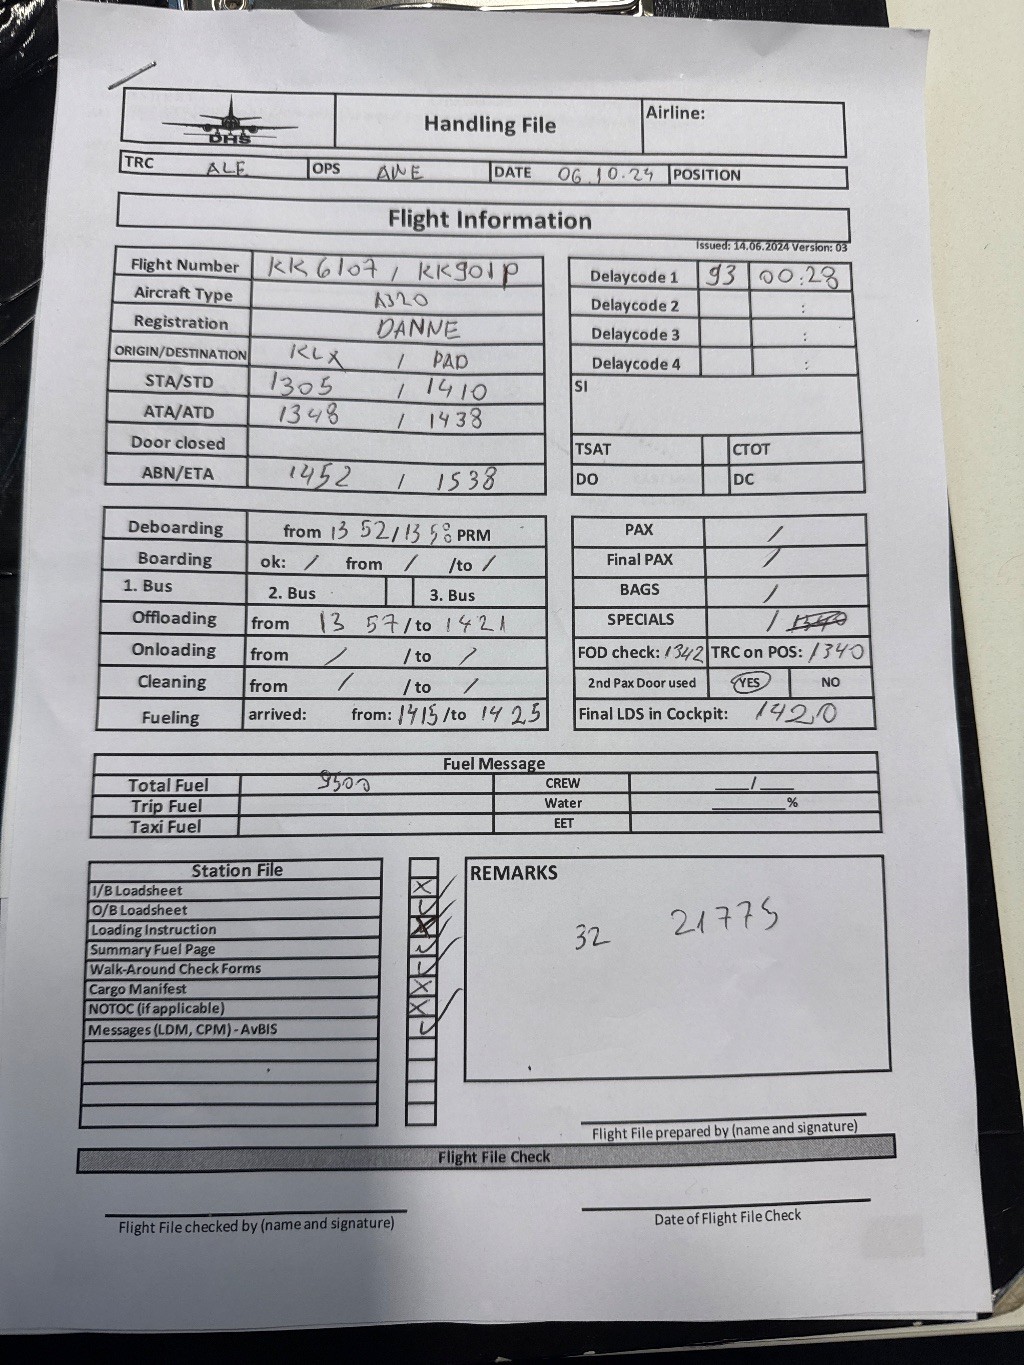 DHS
Handling File
Airline:
TRC ALE OPS AWE DATE 06.10.24 POSITION
Flight Information
Issued: 14.06.2024 Version: 03
Flight Number KK6107 / KK901P
Aircraft Type A320
Registration DANNE
ORIGIN/DESTINATION KLX / PAD
STA/STD 1305 / 1410
ATA/ATD 1348 / 1438
Door closed
ABN/ETA 1452 / 1538
Delaycode 1 93 00:28
Delaycode 2 :
Delaycode 3 :
Delaycode 4 :
SI
TSAT CTOT
DO DC
Deboarding from 13 52/13 58 PRM
Boarding ok: / from / /to /
1. Bus 2. Bus 3. Bus
Offloading from 13 57/to 1421
Onloading from / /to /
Cleaning from / /to /
Fueling arrived: from: 1415/to 14 25
PAX /
Final PAX /
BAGS /
SPECIALS /
FOD check: 1342 TRC on POS: 1340
2nd Pax Door used YES NO
Final LDS in Cockpit: 1420
Fuel Message
Total Fuel 9500 CREW ___/___
Trip Fuel Water ______%
Taxi Fuel EET
Station File
I/B Loadsheet
O/B Loadsheet
Loading Instruction
Summary Fuel Page
Walk-Around Check Forms
Cargo Manifest
NOTOC (if applicable)
Messages (LDM, CPM) - AvBIS
REMARKS
32 21775
Flight File prepared by (name and signature)
Flight File Check
Flight File checked by (name and signature)
Date of Flight File Check